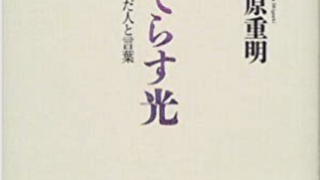 原重明
てらす光
だ人と言葉